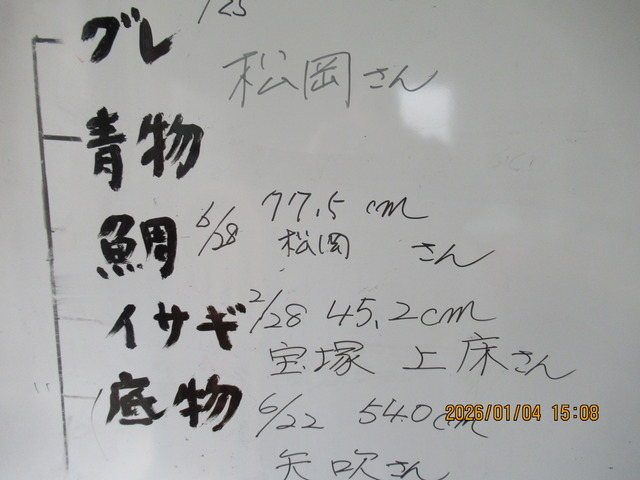 グレ
松岡さん
青物
鯛 6/28 77.5cm
松岡 さん
イサギ 2/28 45.2cm
宝塚 上床さん
底物 6/22 54.0cm
矢吹さん
2026/01/04 15:08